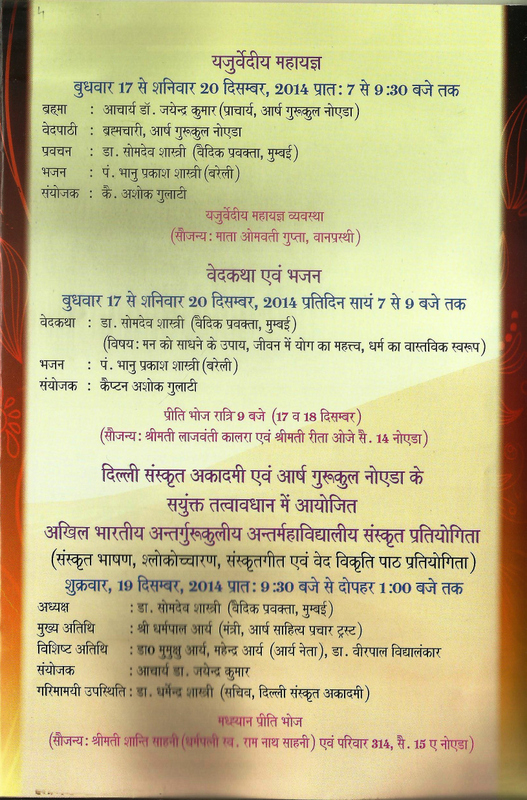 यजुर्वेदीय महायज्ञ
बुधवार 17 से शनिवार 20 दिसम्बर, 2014 प्रात: 7 से 9:30 बजे तक
बह्मा : आचार्य डॉ. जयेन्द्र कुमार (प्राचार्य, आर्ष गुरूकुल नोएडा)
वेदपाठी : ब्रह्मचारी, आर्ष गुरूकुल नोएडा
प्रवचन : डा. सोमदेव शास्त्री (वैदिक प्रवक्ता, मुम्बई)
भजन : पं. भानु प्रकाश शास्त्री (बरेली)
संयोजक : कै. अशोक गुलाटी
यजुर्वेदीय महायज्ञ व्यवस्था
(सौजन्य: माता ओमवती गुप्ता, वानप्रस्थी)
वेदकथा एवं भजन
बुधवार 17 से शनिवार 20 दिसम्बर, 2014 प्रतिदिन सायं 7 से 9 बजे तक
वेदकथा : डा. सोमदेव शास्त्री (वैदिक प्रवक्ता, मुम्बई)
(विषय: मन को साधने के उपाय, जीवन में योग का महत्त्व, धर्म का वास्तविक स्वरूप)
भजन : पं. भानु प्रकाश शास्त्री (बरेली)
संयोजक : कैप्टन अशोक गुलाटी
प्रीति भोज रात्रि 9 बजे (17 व 18 दिसम्बर)
(सौजन्य: श्रीमती लाजवंती कालरा एवं श्रीमती रीता ओजे सै. 14 नोएडा)
दिल्ली संस्कृत अकादमी एवं आर्ष गुरूकुल नोएडा के
सयुंक्त तत्वावधान में आयोजित
अखिल भारतीय अन्तर्गुरूकुलीय अन्तर्महाविद्यालीय संस्कृत प्रतियोगिता
(संस्कृत भाषण, श्लोकोच्चारण, संस्कृतगीत एवं वेद विकृति पाठ प्रतियोगिता)
शुक्रवार, 19 दिसम्बर, 2014 प्रात: 9:30 बजे से दोपहर 1:00 बजे तक
अध्यक्ष : डा. सोमदेव शास्त्री (वैदिक प्रवक्ता, मुम्बई)
मुख्य अतिथि : श्री धर्मपाल आर्य (मंत्री, आर्ष साहित्य प्रचार ट्रस्ट)
विशिष्ट अतिथि : डा0 मुमुक्षु आर्य, महेन्द्र आर्य (आर्य नेता), डा. वीरपाल विद्यालंकार
संयोजक : आचार्य डा. जयेन्द्र कुमार
गरिमामयी उपस्थिति : डा. धर्मेन्द्र शास्त्री (सचिव, दिल्ली संस्कृत अकादमी)
मध्यान प्रीति भोज
(सौजन्य: श्रीमती शान्ति साहनी (धर्मपत्नी स्व. राम नाथ साहनी) एवं परिवार 314, सै. 15 ए नोएडा)